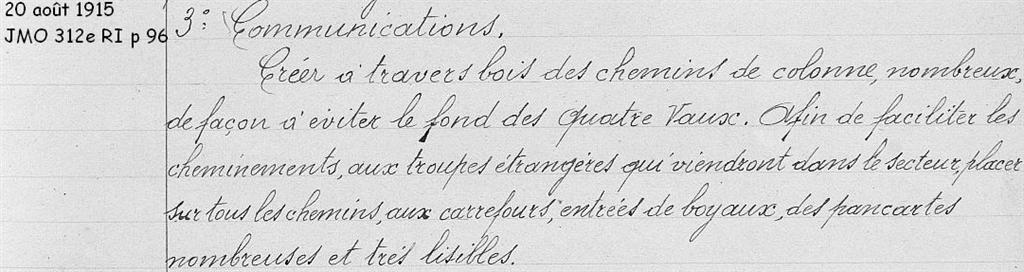 20 août 1915
JMO 312e RI p 96
3º: Communications.
Créer à travers bois des chemins de colonne, nombreux,
de façon à eviter le fond des Quatre Vaux. Afin de faciliter les
cheminements, aux troupes étrangères qui viendront dans le secteur, placer
sur tous les chemins, aux carrefours, entrées de boyaux, des pancartes
nombreuses et très lisibles.